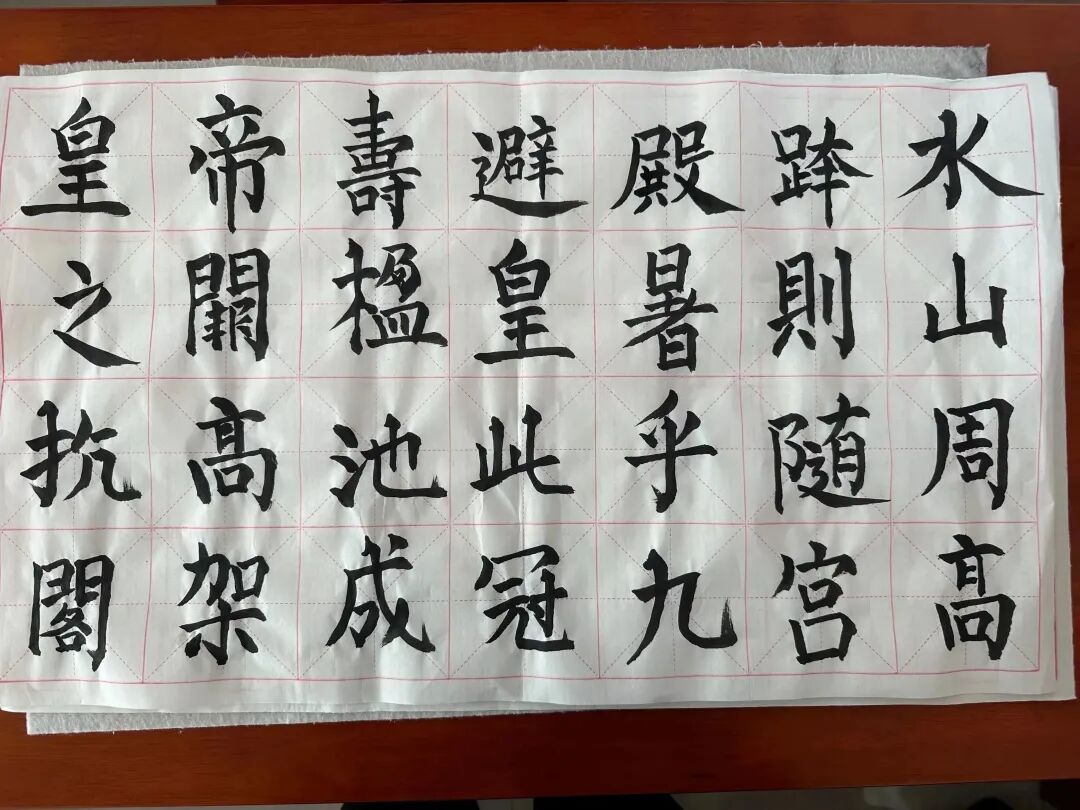 水山周高
跨則随宮
殿暑乎九
避皇此冠
壽楹池成
帝闕高架
皇之抗閣